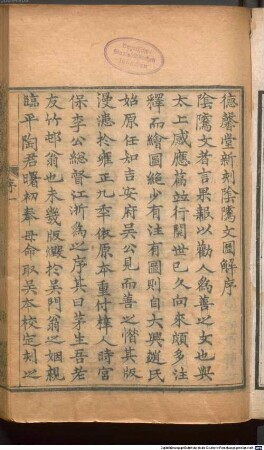 德馨堂新刻陰騭文圖解序
陰騭文者言果報以勸人為善之文也與
太上感應篇並行閱世已久向來頗多注
釋而繪圖絕少有注有圖則自大興趙氏
始原任知吉安府吳公見而善之惜其版
漫漶於雍正九季依原本重付梓人時宮
保李公總督江浙為之序其曰茅生吾若
友竹邨翁也未幾版燬於吳門翁之姻親
臨平陶君曙初奉母命取吳本校定刻之
序
一